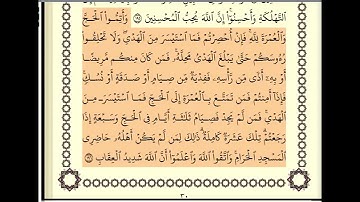 التَّهْلُكَةِ وَأَحْسِنُوا إِنَّ اللَّهَ يُحِبُّ الْمُحْسِنِينَ ﴿١٩٥﴾ وَأَتِمُّوا الْحَجَّ
وَالْعُمْرَةَ لِلَّهِ فَإِنْ أُحْصِرْتُمْ فَمَا اسْتَيْسَرَ مِنَ الْهَدْيِ وَلَا تَحْلِقُوا
رُءُوسَكُمْ حَتَّى يَبْلُغَ الْهَدْيُ مَحِلَّهُ فَمَنْ كَانَ مِنْكُمْ مَرِيضًا
أَوْ بِهِ أَذًى مِنْ رَأْسِهِ فَفِدْيَةٌ مِنْ صِيَامٍ أَوْ صَدَقَةٍ أَوْ نُسُكٍ
فَإِذَا أَمِنْتُمْ فَمَنْ تَمَتَّعَ بِالْعُمْرَةِ إِلَى الْحَجِّ فَمَا اسْتَيْسَرَ مِنَ
الْهَدْيِ فَمَنْ لَمْ يَجِدْ فَصِيَامُ ثَلَاثَةِ أَيَّامٍ فِي الْحَجِّ وَسَبْعَةٍ إِذَا
رَجَعْتُمْ تِلْكَ عَشَرَةٌ كَامِلَةٌ ذَلِكَ لِمَنْ لَمْ يَكُنْ أَهْلُهُ حَاضِرِي
الْمَسْجِدِ الْحَرَامِ وَاتَّقُوا اللَّهَ وَاعْلَمُوا أَنَّ اللَّهَ شَدِيدُ الْعِقَابِ ﴿١٩٦﴾
٣٠